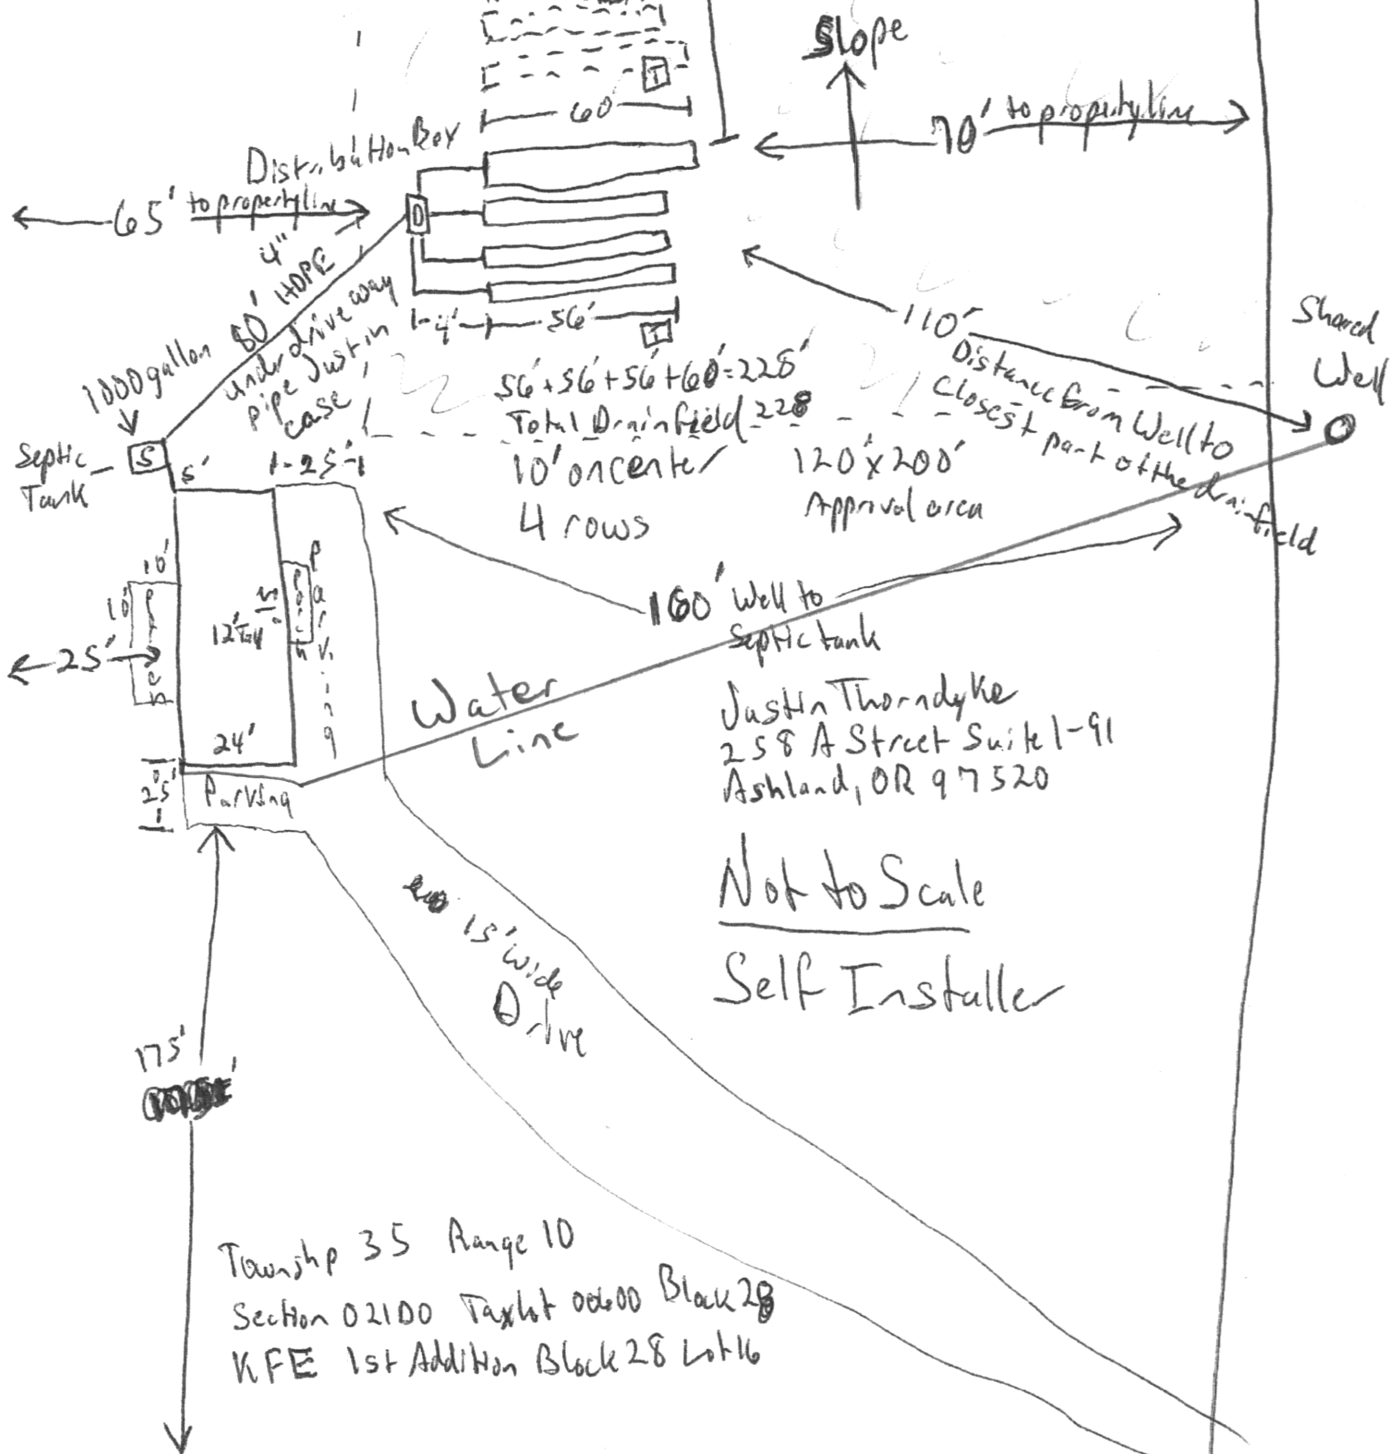 Slope
T
60'
70' to property line
Distribution Box
65' to property line
D
4"
80' HDPE
under driveway
pipe Just in
case
1000 gallon
4'
56'
T
110'
Distance from Well to
Closest part of the drainfield
Shared
Well
56'+56'+56'+60'=228'
Total Drainfield 228
10' on center
4 rows
120'x200'
Approval area
S
Septic
Tank
5'
25'
10'
10'
Porch
Porch
Parking
12' Tall
25'
24'
25'
Parking
160' Well to
Septic tank
Water
Line
Justin Thorndyke
258 A Street Suite 1-91
Ashland, OR 97520
Not to Scale
Self Installer
15' wide
Drive
175'
Township 35 Range 10
Section 021D0 Taxlot 00600 Block 28
KFE 1st Addition Block 28 Lot 16